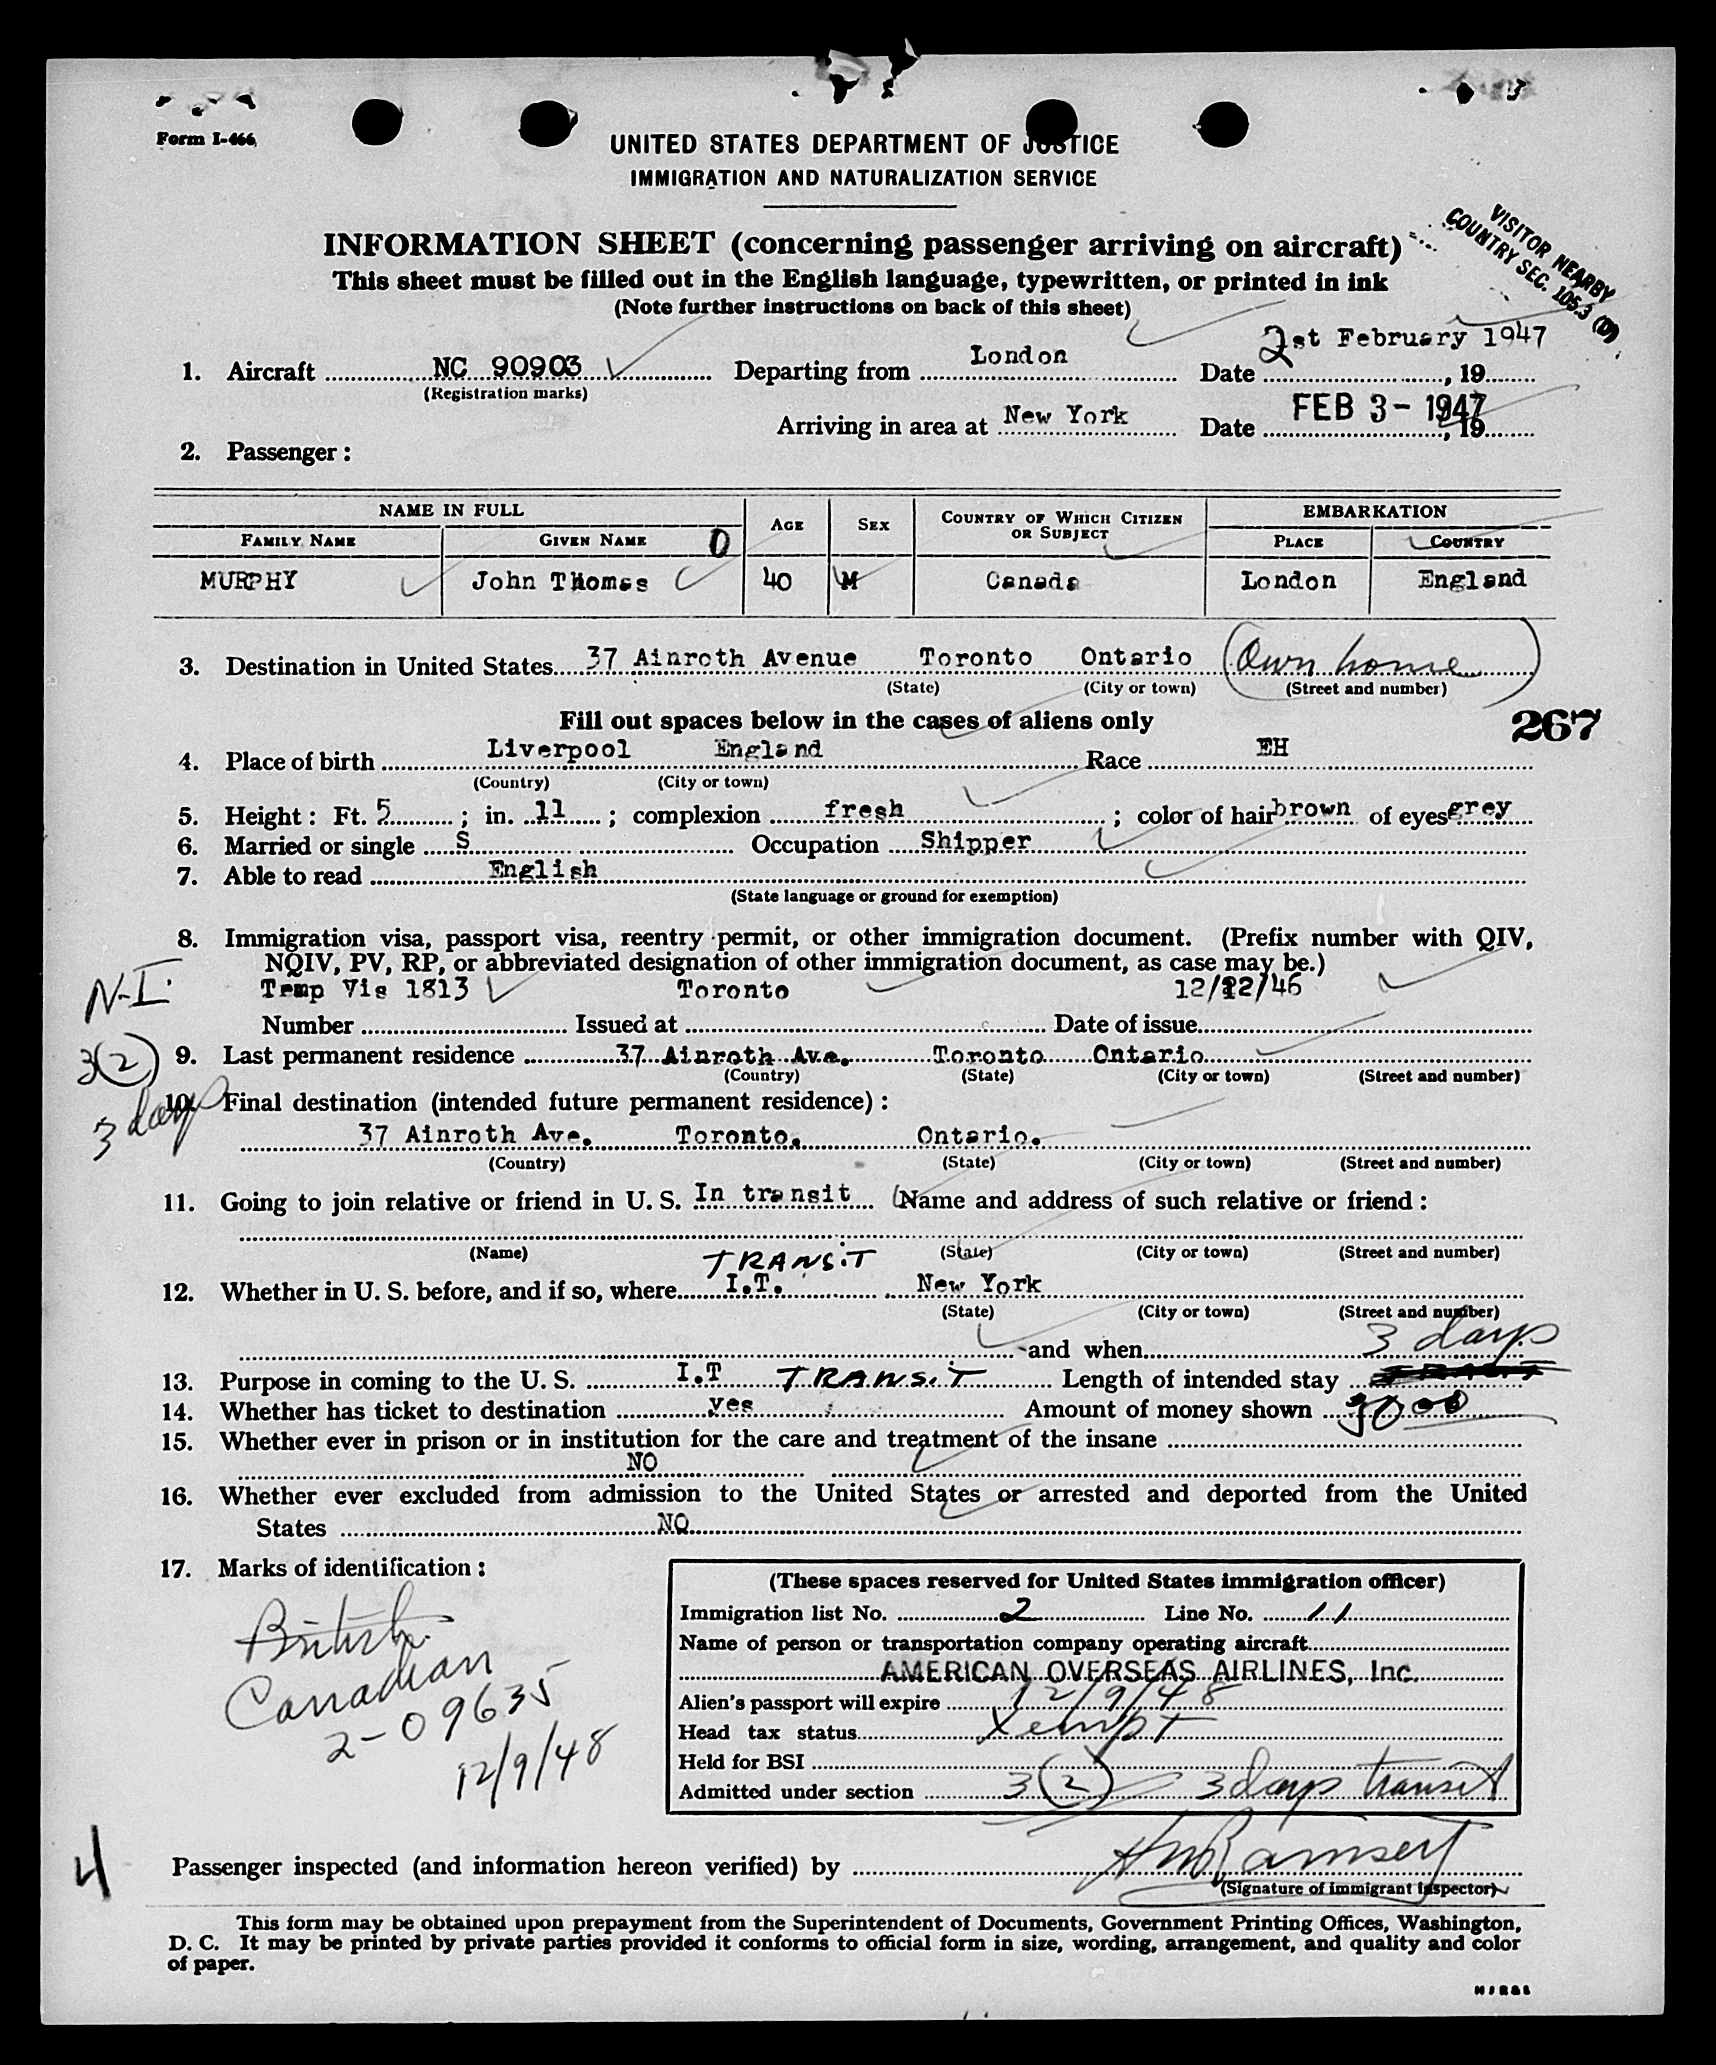 Form I-466
UNITED STATES DEPARTMENT OF JUSTICE
IMMIGRATION AND NATURALIZATION SERVICE
VISITOR NEARBY
COUNTRY SEC. 105.3 (D)
INFORMATION SHEET (concerning passenger arriving on aircraft)
This sheet must be filled out in the English language, typewritten, or printed in ink
(Note further instructions on back of this sheet)
1. Aircraft NC 90903 Departing from London Date 2st February 1947, 19
(Registration marks)
Arriving in area at New York Date FEB 3 - 1947, 19
2. Passenger:
NAME IN FULL AGE SEX COUNTRY OF WHICH CITIZEN OR SUBJECT EMBARKATION
FAMILY NAME GIVEN NAME 0 PLACE COUNTRY
MURPHY John Thomas 40 M Canada London England
3. Destination in United States 37 Ainroth Avenue Toronto Ontario (Own home)
(State) (City or town) (Street and number)
Fill out spaces below in the cases of aliens only
267
4. Place of birth Liverpool England Race EH
(Country) (City or town)
5. Height: Ft. 5; in. 11; complexion fresh; color of hair brown of eyes grey
6. Married or single S Occupation Shipper
7. Able to read English
(State language or ground for exemption)
8. Immigration visa, passport visa, reentry permit, or other immigration document. (Prefix number with QIV,
NQIV, PV, RP, or abbreviated designation of other immigration document, as case may be.)
N-I.
Temp Vis 1813 Toronto 12/12/46
Number Issued at Date of issue
3(2)
9. Last permanent residence 37 Ainroth Ave. Toronto Ontario
(Country) (State) (City or town) (Street and number)
3 days
10. Final destination (intended future permanent residence):
37 Ainroth Ave. Toronto. Ontario.
(Country) (State) (City or town) (Street and number)
11. Going to join relative or friend in U. S. In transit (Name and address of such relative or friend:
(Name) (State) (City or town) (Street and number)
TRANSIT
12. Whether in U. S. before, and if so, where I.T. New York
(State) (City or town) (Street and number)
and when 3 days
13. Purpose in coming to the U. S. I.T TRANSIT Length of intended stay
14. Whether has ticket to destination yes Amount of money shown 3000
15. Whether ever in prison or in institution for the care and treatment of the insane
NO
16. Whether ever excluded from admission to the United States or arrested and deported from the United
States NO
17. Marks of identification:
British
Canadian
2-09635
12/9/48
(These spaces reserved for United States immigration officer)
Immigration list No. 2 Line No. 11
Name of person or transportation company operating aircraft
AMERICAN OVERSEAS AIRLINES, Inc.
Alien's passport will expire 12/9/48
Head tax status Xempt
Held for BSI
Admitted under section 3(2) 3 days transit
4
Passenger inspected (and information hereon verified) by HM Ramsey
(Signature of immigrant inspector)
This form may be obtained upon prepayment from the Superintendent of Documents, Government Printing Offices, Washington,
D. C. It may be printed by private parties provided it conforms to official form in size, wording, arrangement, and quality and color
of paper.